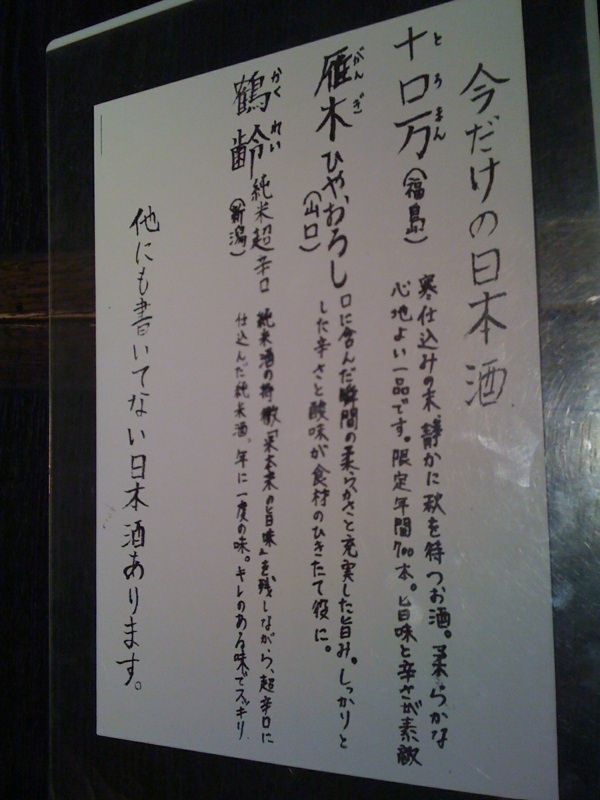 今だけの日本酒
とろまん
十口万(福島)
寒仕込みの末、静かに秋を待つお酒。柔らかな
心地よい一品です。限定年間700本。旨味と辛さが素敵
がんぎ
雁木ひやおろし
(山口)
口に含んだ瞬間の柔らかさと充実した旨み。しっかりと
した辛さと酸味が食材のひきたて役に。
かくれい
鶴齢純米超辛口
(新潟)
純米酒の特徴「米本来の旨味」を残しながら、超辛口に
仕込んだ純米酒。年に一度の味。キレのある味でスッキリ
他にも書いてない日本酒あります。